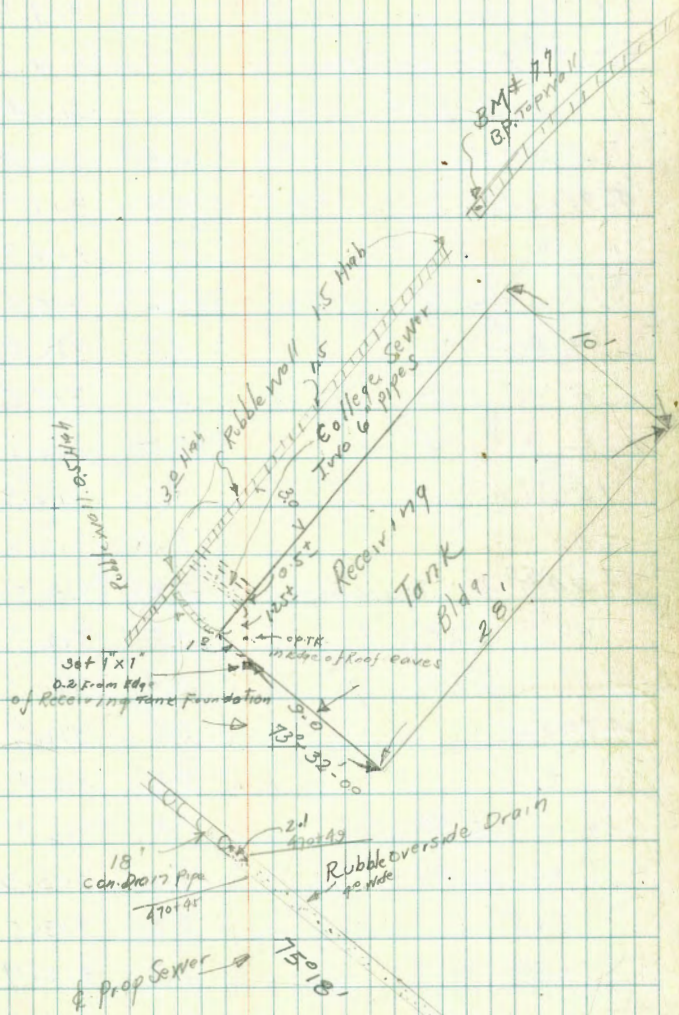 BM# 77
B.P. Top Wall
1.5 High
Rubble wall
1.5
College Sewer
Two 6" pipes
10'
3.0 High
Rubble wall 0.5 High
3.0
0.5±
1.25±
Receiving
Tank
Bldg.
28'
1.0
Cp.TK
in edge of Roof eaves
Set 1" x 1"
0.2 From Edge
of Receiving Tank Foundation
9.0
73°-32'-00
2.1
470+49
18"
Con. Drain Pipe
470+45
Rubble overside Drain
4.0 wide
₵ Prop Sewer
75°18'